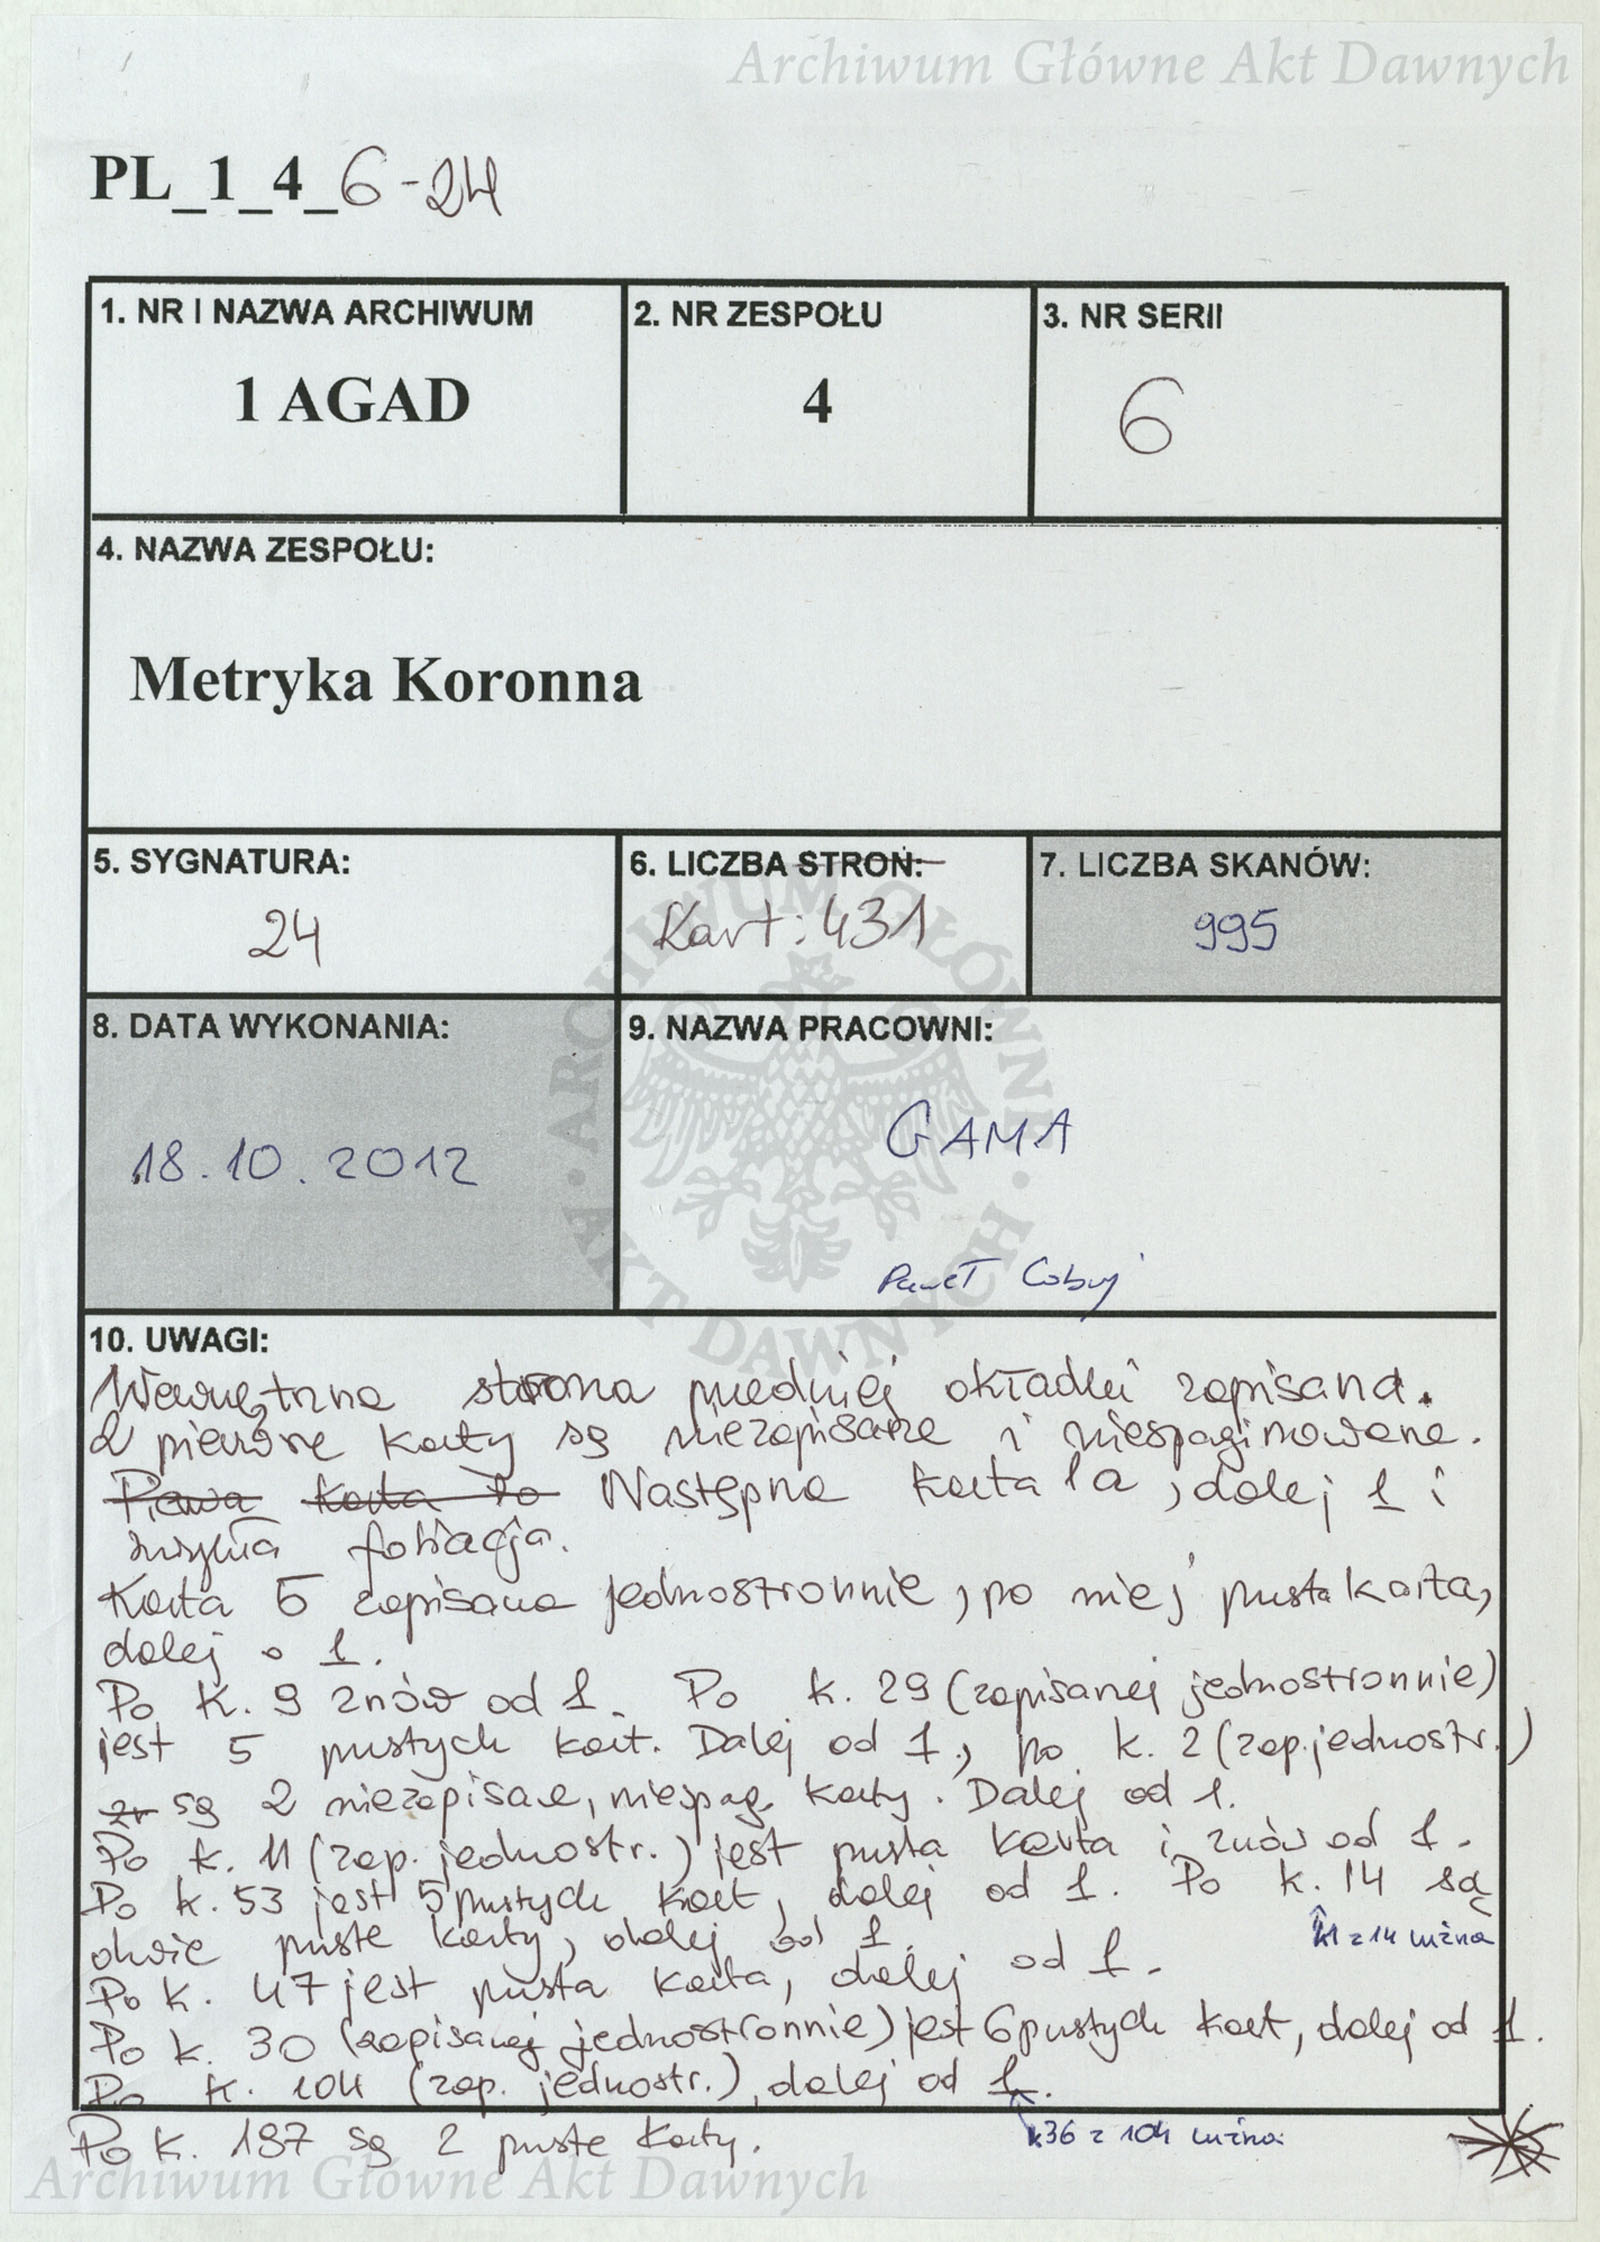 Archiwum Główne Akt Dawnych
PL_1_4_6-24
1. NR I NAZWA ARCHIWUM
1 AGAD
2. NR ZESPOŁU
4
3. NR SERII
6
4. NAZWA ZESPOŁU:
Metryka Koronna
5. SYGNATURA:
24
6. LICZBA STRON:
Kart: 431
7. LICZBA SKANÓW:
995
8. DATA WYKONANIA:
18.10.2012
9. NAZWA PRACOWNI:
GAMA
Paweł
ARCHIWUM GŁÓWNE · AKT DAWNYCH ·
10. UWAGI:
Wewnętrzna strona przedniej okładki zapisana.
2 pierwsze karty są niezapisane i niespaginowane.
Pierwsza Karta Po Następna karta 1a, dalej 1 i
zwykła foliacja.
Karta 5 zapisana jednostronnie, po niej pusta karta,
dalej o 1.
Po k. 9 znów od 1. Po k. 29 (zapisanej jednostronnie)
jest 5 pustych kart. Dalej od 1., po k. 2 (zap. jednostr.)
są 2 niezapisane, niespag. karty. Dalej od 1.
Po k. 11 (zap. jednostr.) jest pusta karta i znów od 1.
Po k. 53 jest 5 pustych kart, dalej od 1. Po k. 14 są
dwie puste karty, dalej od 1.
k1 z 14 luźna
Po k. 47 jest pusta karta, dalej od 1.
Po k. 30 (zapisanej jednostronnie) jest 6 pustych kart, dalej od 1.
Po k. 104 (zap. jednostr.), dalej od 1.
Po k. 197 są 2 puste karty.
k36 z 104 luźna
Archiwum Główne Akt Dawnych